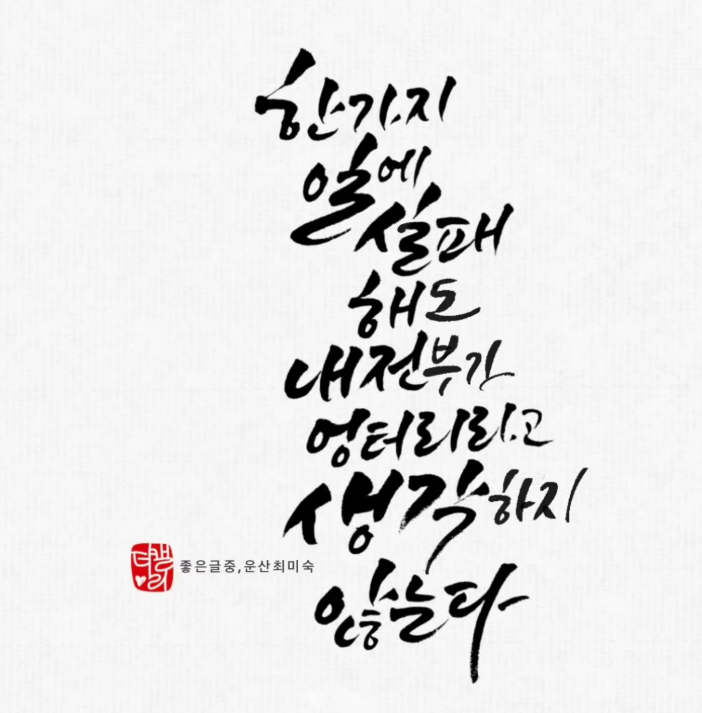 한가지
일에
실패
해도
내전부가
엉터리라고
생각하지
않는다
좋은글중,운산최미숙